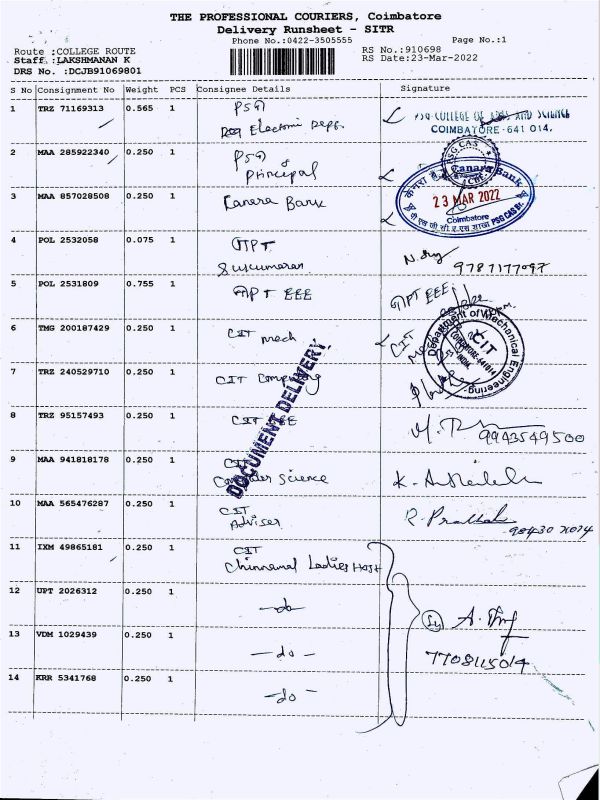 THE PROFESSIONAL COURIERS, Coimbatore
Delivery Runsheet - SITR
Phone No.:0422-3505555 Page No.:1
Route :COLLEGE ROUTE RS No.:910698
Staff :LAKSHMANAN K RS Date:23-Mar-2022
DRS No. :DCJB91069801
S No Consignment No Weight PCS Consignee Details Signature
1 TRZ 71169313 0.565 1 PSG
PSG COLLEGE OF ARTS AND SCIENCE
COIMBATORE - 641 014.
2 MAA 285922340 0.250 1 PSG
Principal
PSG CAS
CBE
3 MAA 857028508 0.250 1 Canara Bank
Canara Bank
23 MAR 2022
Coimbatore
PSG CAS Br.
4 POL 2532058 0.075 1 GPT
Sukumaran
9787177097
5 POL 2531809 0.755 1 GPT EEE GPT EEE
6 TMG 200187429 0.250 1 CIT mech CIT
Department of Mechanical Engineering
CIT
COIMBATORE-641014
INDIA
7 TRZ 240529710 0.250 1 CIT Computing
DOCUMENT DELIVERY
8 TRZ 95157493 0.250 1 CIT EE
9943549500
9 MAA 941818178 0.250 1 CIT
Computer Science
10 MAA 565476287 0.250 1 CIT
Adviser
11 IXM 49865181 0.250 1 CIT
Chinnamal Ladies Host
12 UPT 2026312 0.250 1 -do
13 VDM 1029439 0.250 1 -do-
7708115014
14 KRR 5341768 0.250 1 -do-